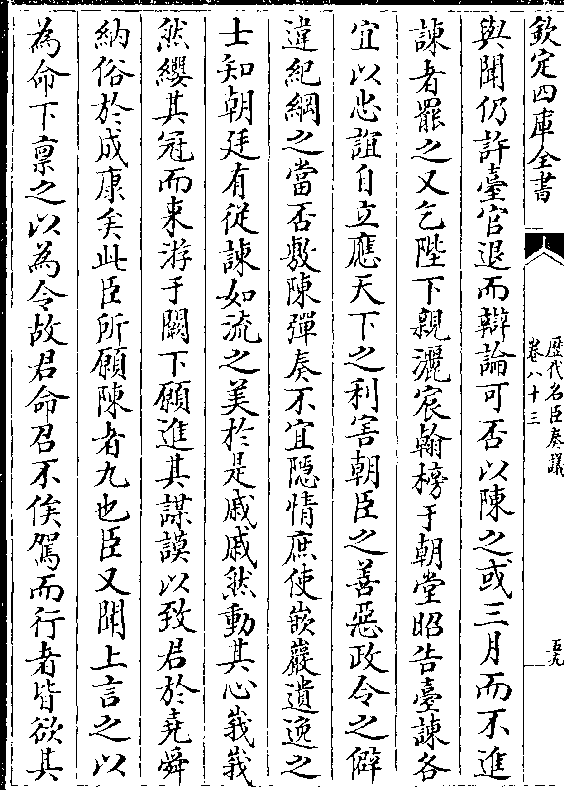 欽定四庫全書
歷代名臣奏議
卷八十三
五九
與聞仍許臺官退而辯論可否以陳之或三月而不進
諫者罷之又乞陛下親灑宸翰榜于朝堂昭告臺諫各
宜以忠誼自立應天下之利害朝臣之善惡政令之僻
違紀綱之當否敷陳彈奏不宜隠情庶使嵌巖遺逸之
士知朝廷有從諫如流之美於是戚戚然動其心峩峩
然纓其冠而來游于闕下願進其謀謨以致君於堯舜
納俗於成康矣此臣所願陳者九也臣又聞上言之以
為命下禀之以為令故君命召不俟駕而行者皆欲其